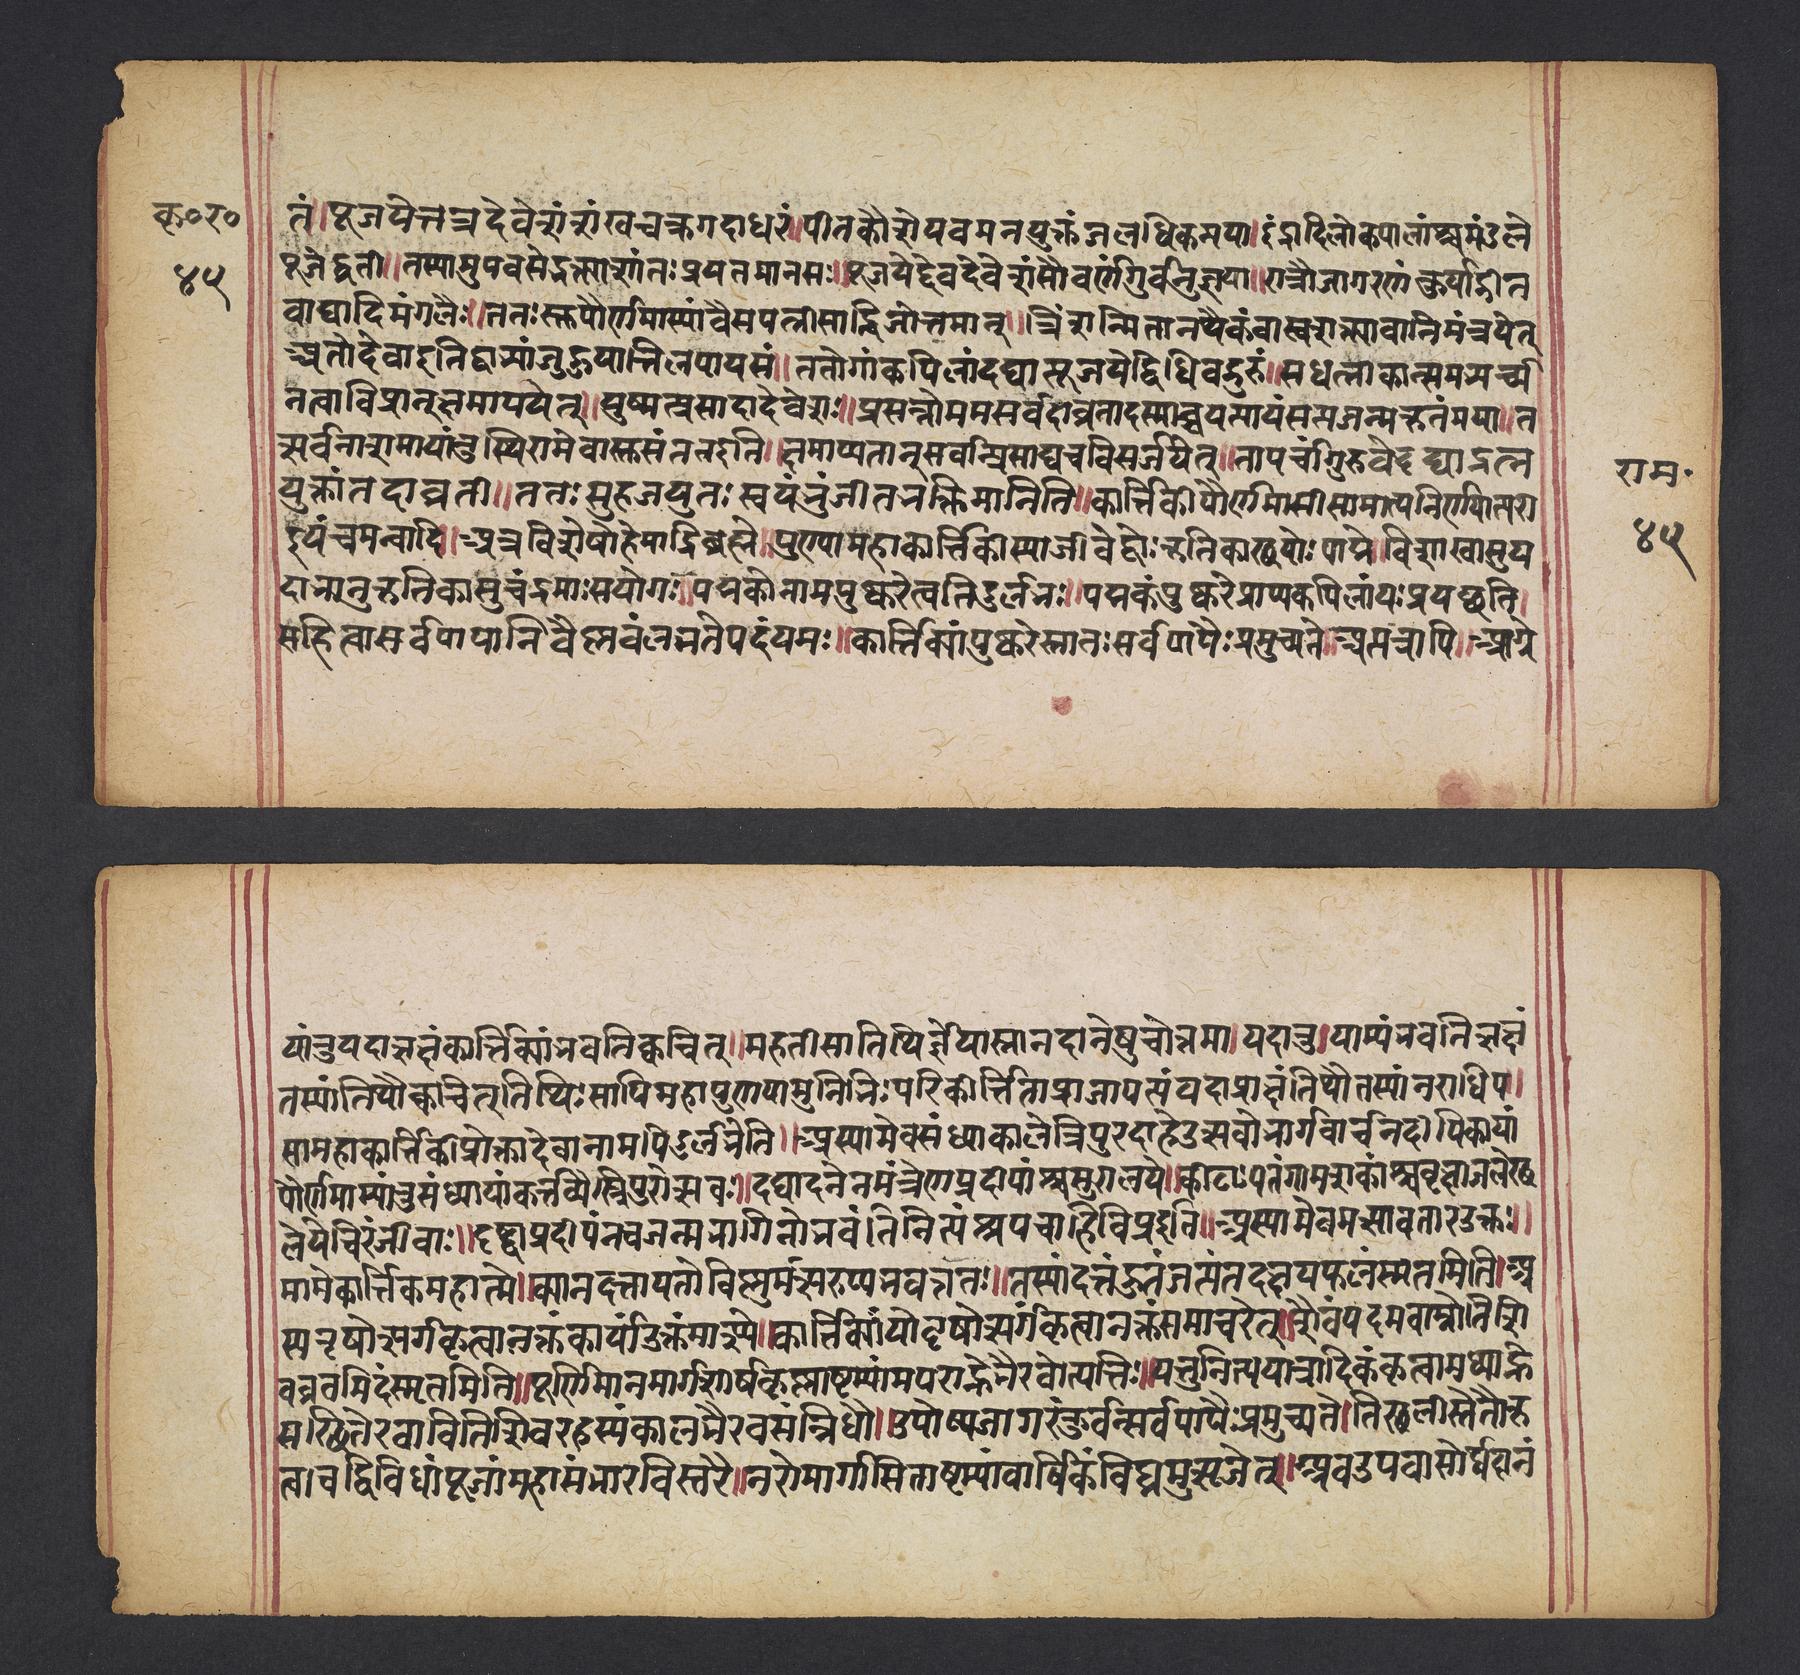 कृ०र०
४५
तं॥पूजयेत्तत्रदेवेशंशंखचक्रगदाधरं॥पीतकौशेयवसनयुक्तंजलधिकन्यया॥इंद्रादिलोकपालांश्चमंडले
पूजेद्व्रती॥तस्यामुपवसेद्भक्त्याशांतःप्रयतमानसः॥पूजयेद्देवदेवेशंसौवर्णंगुर्वनुज्ञया॥रात्रौजागरणंकुर्याद्गीत
वाद्यादिमंगलैः॥ततःस्तुपौर्णमास्यांवैसपत्नीसाद्विजोत्तमान्॥त्रिंशन्मितानथैकंवास्वशक्त्यावानिमंत्रयेत्
अतोदेवाइतिद्वाभ्यांजुहुयात्तिलपायसं॥ततोगांकपिलांदद्यात्पूजयेद्विधिवद्गुरुं॥सपत्नीकान्समभ्यर्च्य
नत्वाविप्रान्क्षमापयेत्॥युष्मत्प्रसादाद्देवेशः॥प्रसन्नोममसर्वदाव्रतादस्माच्चयत्पापंसप्तजन्मकृतंमया॥त
त्सर्वनाशमायांतुस्थिरामेवास्तुसंततइति॥क्षमाप्यतान्सर्वान्प्रसाद्यचविसर्जयेत्॥तापचंगुरुवेदद्याद्रत्न
युक्तांतदाव्रती॥ततःसुहृज्जयुतःस्वयंभुंजीतभक्तिमानिति॥कार्त्तिकीपौर्णमासीसामात्यनिर्णयात्परा
इयंचमन्वादि॥अत्रविशेषोहेमाद्रिब्रह्मे॥पुण्यामहाकार्त्तिकीस्याज्जीवेंद्वोःकृतिकास्थयोःपाद्मे॥विशाखासुय
दाभानुकृत्तिकासुचंद्रमाःसयोगः॥पद्मकोनामपुष्करेत्वतिदुर्लभः॥पद्मकंपुष्करेप्राप्यकपिलांयःप्रयच्छति॥
सहित्वासर्वपापानिवैष्णवंलभतेपदंयमः॥कार्त्तिक्यांपुष्करेस्नातःसर्वपापैःप्रमुच्यते॥अन्यत्रापि॥आग्ने
राम॰
४५
यांतुयदाऋक्षंकार्त्तिक्यांभवतिक्वचित्॥महतीसातिथिर्ज्ञेयास्नानदानेषुचोत्तमा॥यदातु॥याम्यंभवतिऋक्षं
तस्यांतिथौक्वचित्तिथिःसापिमहापुण्यामुनिभिःपरिकीर्त्तिताप्राजापत्यंयदाप्राक्षंतिथौतस्यांनराधिप॥
सामहाकार्त्तिकीप्रोक्तादेवानामपिदुर्लभेति॥अस्यामेवसंध्याकालेत्रिपुरदाहेउत्सवोभार्गवार्चनदीपिकायां
पौर्णमास्यांतुसंध्यायांकर्त्तव्यैस्त्रिपुरोत्सवः॥दद्यादनेनमंत्रेणप्रदीपांश्चसुरालये॥कीटाःपतंगामशकाश्चवृक्षाजलेस्थ
लेयेचिरंजीवाः॥दृष्ट्वाप्रदीपंनचजन्मभागिनोभवंतिनित्यंश्वपचाहिविप्रइति॥अस्यामेवमत्स्यावतारउक्तः॥
मामेकार्त्तिकमहात्मे॥व्यानदत्तायतोविष्णुर्मत्स्यरुप्यभवत्ततः॥तस्यांदत्तंहुतंजप्यंतदक्षयफलंस्मृतमिति॥अ
स्यवृषोत्सर्गंकृत्वानक्तंकार्यंतिउक्तंमात्स्ये॥कार्त्तिक्यांयोवृषोत्सर्गंकृत्वानक्तंसमाचरेत्॥शैवंपदमवाप्नोतिशि
वव्रतमिदंस्मृतमिति॥पूर्णिमांतमार्गशीर्षकृष्णाष्टम्यांमपराह्णेभैरवोत्पत्तिः॥यत्तुनित्ययात्रादिकंकृत्वामध्याह्ने
संस्थितेरवावितिशिवरहस्यंकालभैरवसंन्निधौ॥उपोष्यजागरंकुर्वन्सर्वपापैःप्रमुच्यते॥तिस्थलीसेतौकृ
त्वाचद्विविधांपूजांमहासंभारविस्तरैः॥नरोमार्गासिताष्टम्यांवार्षिकंविघ्नमुत्सृजेत्॥अत्रवउपवासोर्घदानं